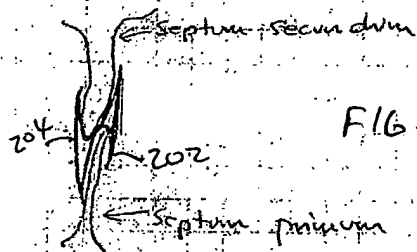 septum secundum
204
FIG
202
septum primum